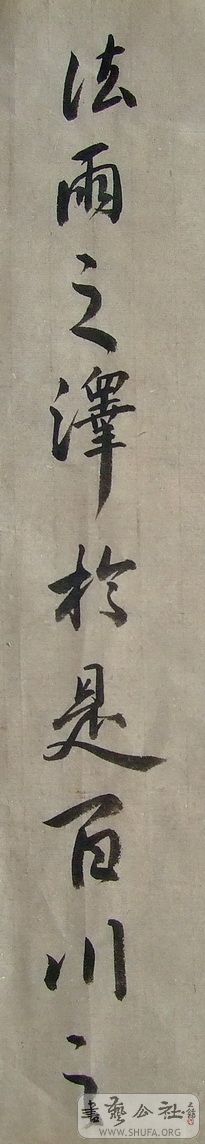 法雨之澤於是百川之
書藝公社
WWW.SHUFA.ORG